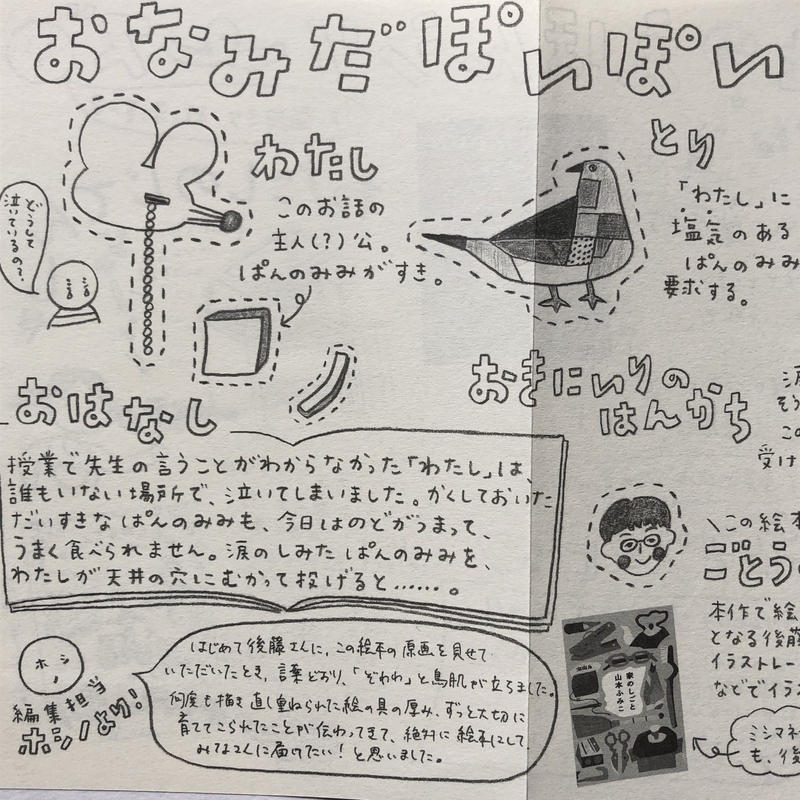 おなみだぽいぽい
わたし
このお話の
主人(?)公。
ぱんのみみがすき。
どうして
泣いているの?
とり
「わたし」に
塩気のある
ぱんのみみ
要求する。
おきにいりの
はんかち
涙
そう
この
受け
おはなし
授業で先生の言うことがわからなかった「わたし」は、
誰もいない場所で、泣いてしまいました。かくしておいた
だいすきなぱんのみみも、今日はのどがつまって、
うまく食べられません。涙のしみたぱんのみみを、
わたしが天井の穴にむかって投げると……。
\この絵本
ごとう
本作で絵
となる後藤
イラストレー
などでイラス
家のしごと
山本ふみこ
ミシマ
も、後
ホシノ
編集担当
ホシノより!
はじめて後藤さんに、この絵本の原画を見せて
いただいたとき、言葉どおり、「ぞわわ」と鳥肌が立ちました。
何度も描き直し重ねられた絵の具の厚み、ずっと大切に
育ててこられたことが伝わってきて、絶対に絵本にして
みなさんに届けたい!と思いました。